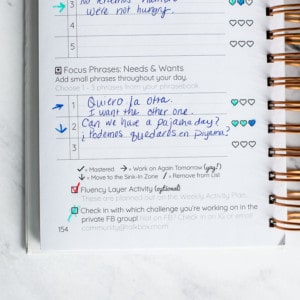 3 No tenemos hambre.
We're not hungry.
4
5
Focus Phrases: Needs & Wants
Add small phrases throughout your day.
Choose 1 - 3 phrases from your phrasebook.
1 Quiero la otra.
I want the other one.
2 Can we have a pajama day?
¿Podemos quedarnos en pijama?
3
✓ = Mastered → = Work on Again Tomorrow (yay!)
↓ = Move to the Sink-In Zone / = Remove from List
Fluency Layer Activity (optional)
These are planned out on the weekly Activity Plan.
Check in with which challenge you're working on in the
private FB group! Not on FB? Check in on IG or email
154 community@talkboxmom